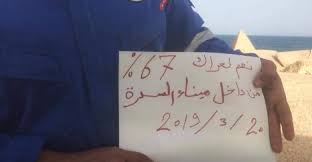 نعم لحراك 67%
من داخل ميناء السدرة
2019/3/20